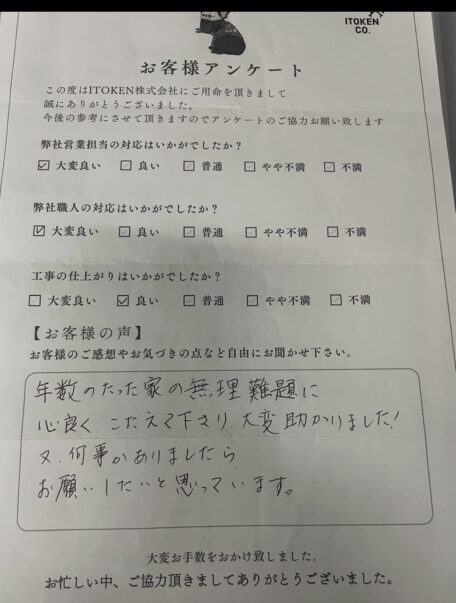 ITOKEN
CO.
お客様アンケート
この度はITOKEN株式会社にご用命を頂きまして
誠にありがとうございました。
今後の参考にさせて頂きますのでアンケートのご協力お願い致します
弊社営業担当の対応はいかがでしたか？
☑ 大変良い □ 良い □ 普通 □ やや不満 □ 不満
弊社職人の対応はいかがでしたか？
☑ 大変良い □ 良い □ 普通 □ やや不満 □ 不満
工事の仕上がりはいかがでしたか？
□ 大変良い ☑ 良い □ 普通 □ やや不満 □ 不満
【お客様の声】
お客様のご感想やお気づきの点など自由にお聞かせ下さい。
年数のたった家の無理難題に
心良く、こたえて下さり、大変助かりました!
又、何事かありましたら
お願いしたいと思っています。
大変お手数をおかけ致しました。
お忙しい中、ご協力頂きましてありがとうございました。